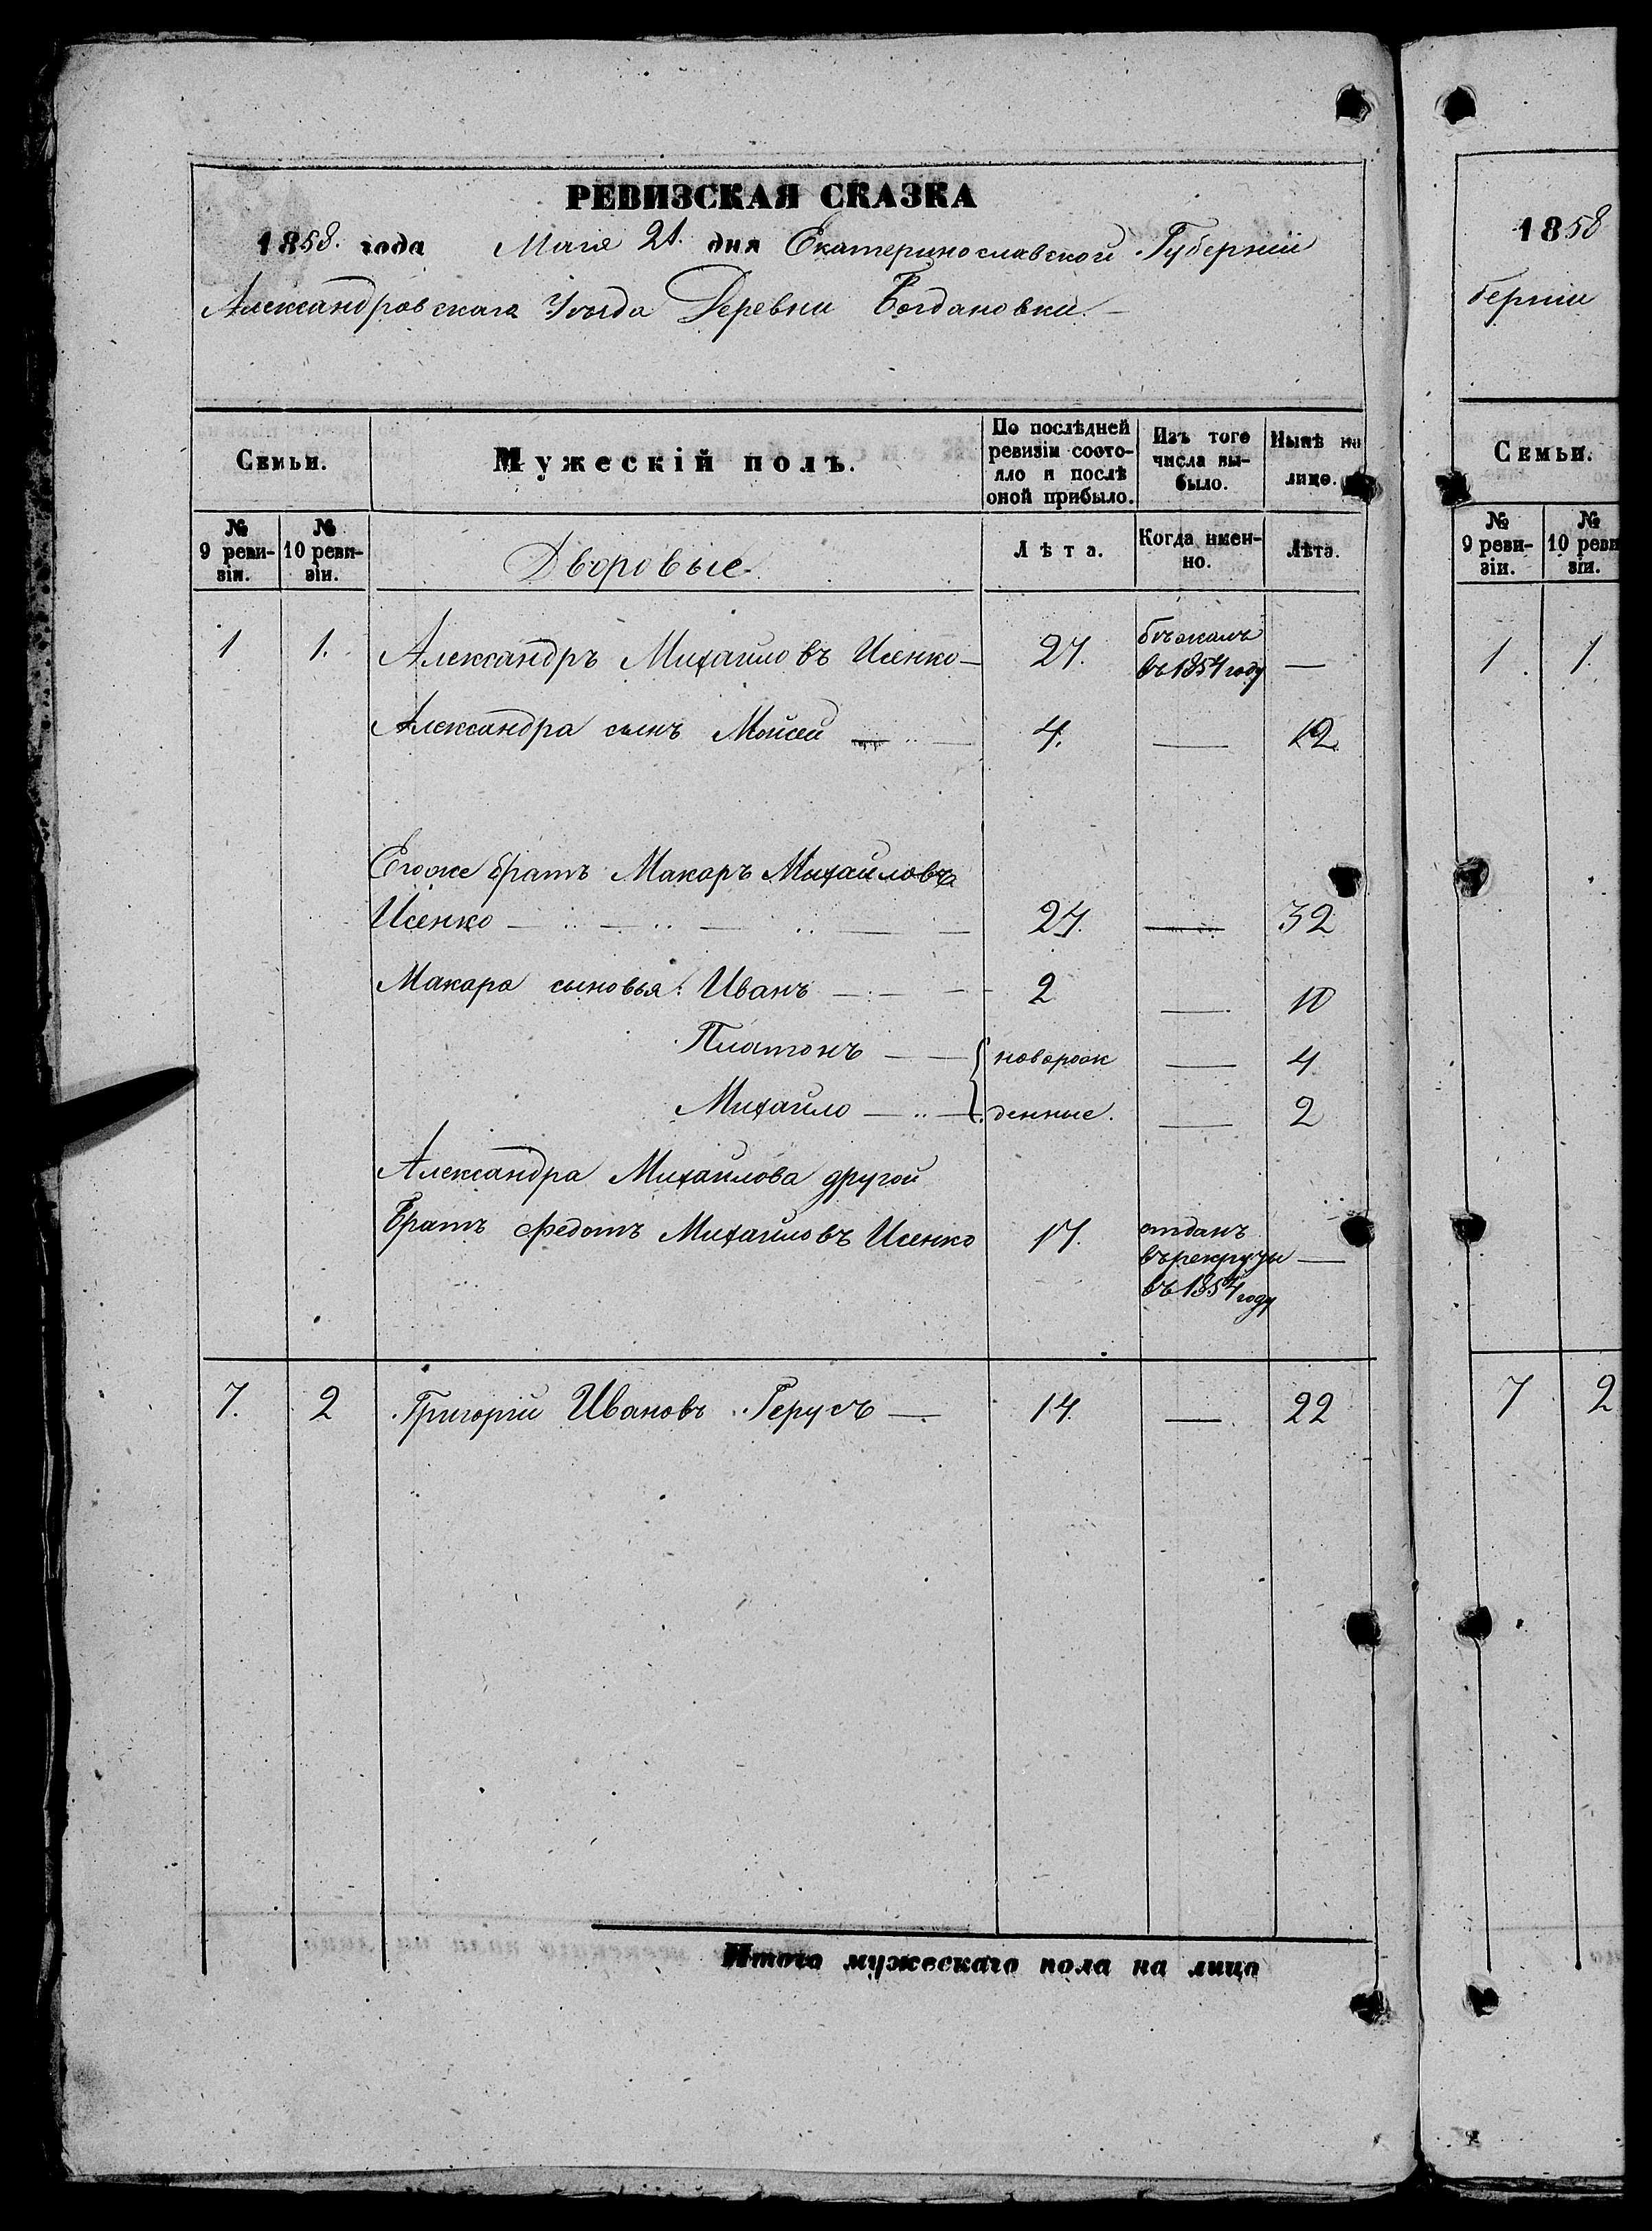 РЕВИЗСКАЯ СКАЗКА
1858. года Мая 21. дня Екатеринославской Губерніи
Александровскаго Уѣзда Деревни Богдановки.
Семьи.
Мужескій полъ.
По послѣдней ревизіи состояло и послѣ оной прибыло.
Изъ того числа выбыло.
Нынѣ на лицо.
№ 9 ревизіи.
№ 10 ревизіи.
Дворовые
Лѣта.
Когда именно.
Лѣта.
1 1. Александръ Михайловъ Исенко — 27. бѣжалъ въ 1854 году —
Александра сынъ Мойсей 4. — 12
Егоже братъ Макаръ Михайловъ
Исенко 24. — 32
Макара сыновья: Иванъ 2 — 10
Платонъ — новорож — 4
Михайло — денные. — 2
Александра Михайлова другой
братъ Федотъ Михайловъ Исенко 17. отданъ въ рекруты въ 1854 году —
7. 2 Григорій Ивановъ Герусъ — 14. — 22
Итого мужескаго пола на лицо
1858
берніи
Семьи.
№ 9 ревизіи.
№ 10 реви
зіи.
1 1.
7 2